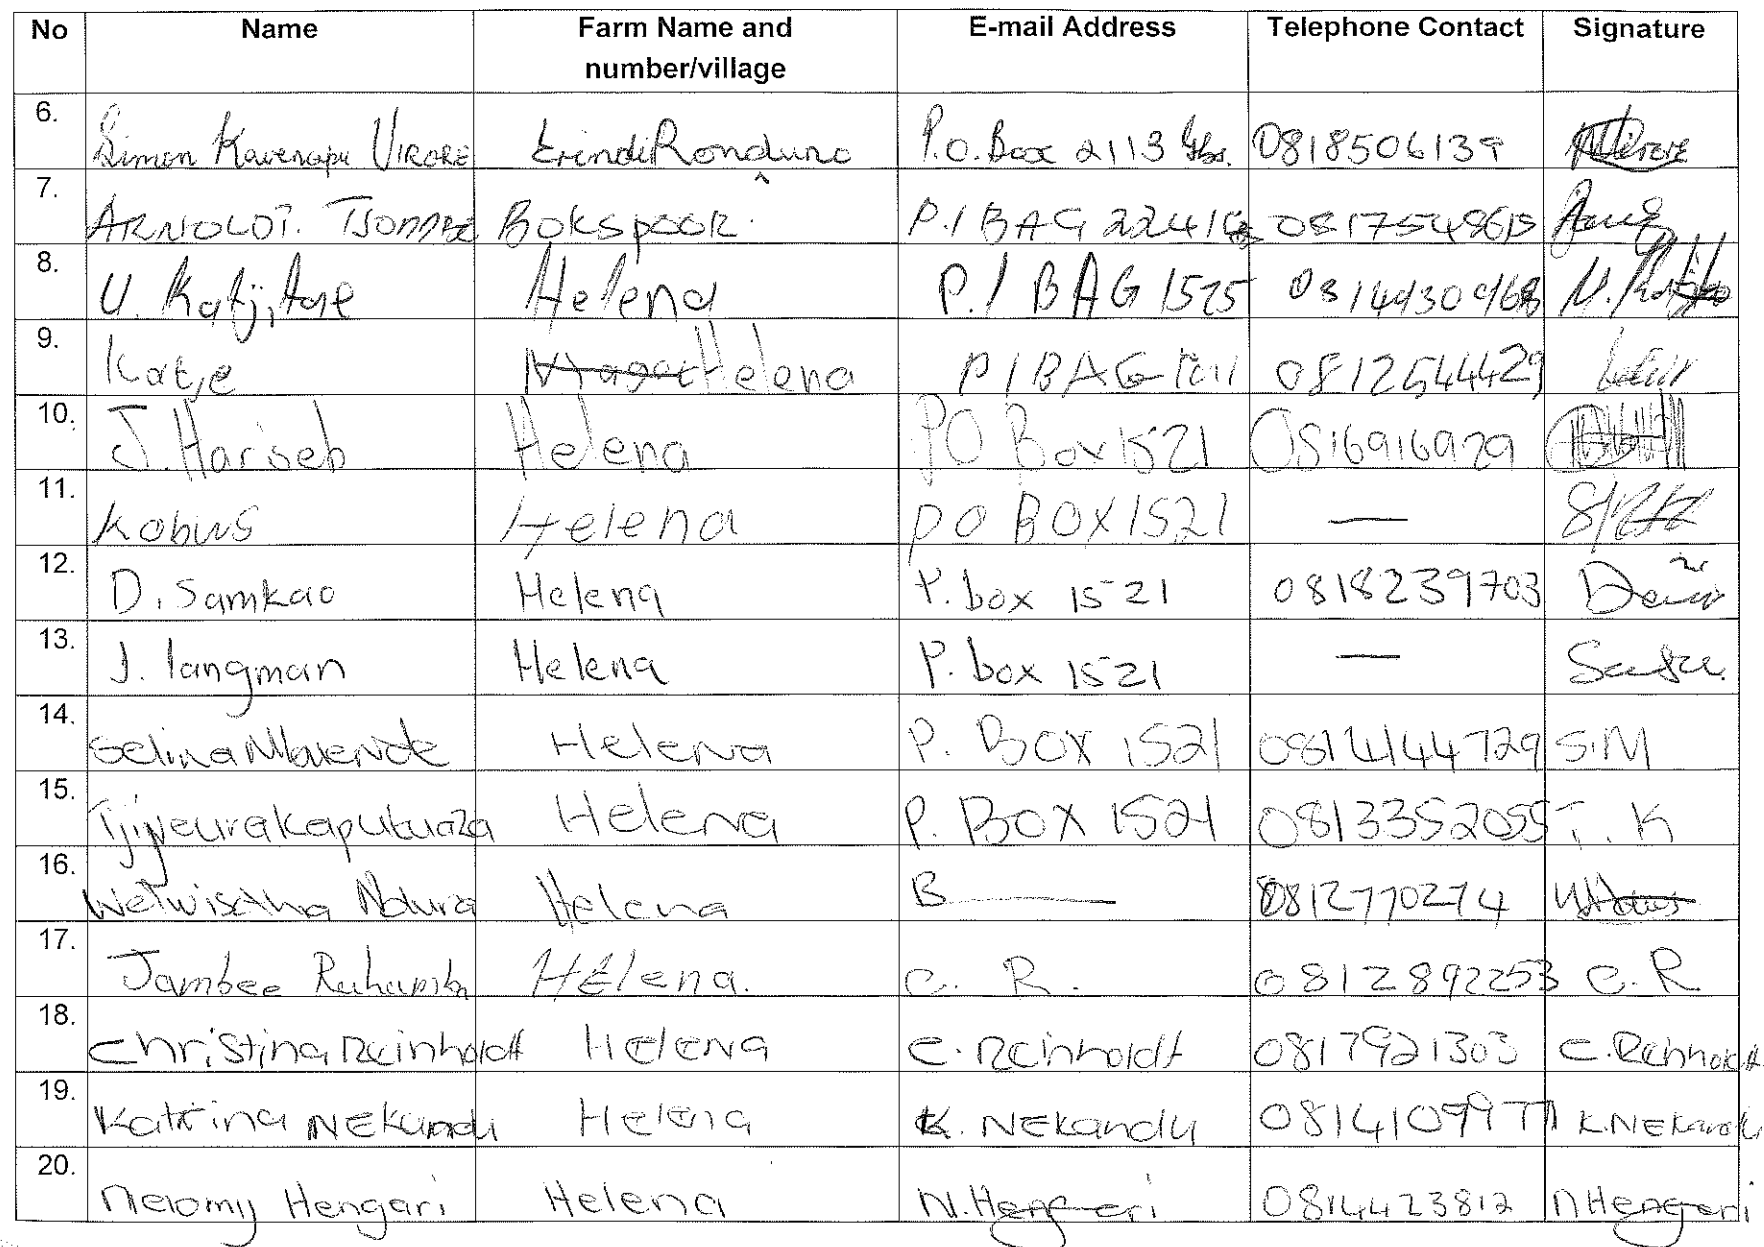 No Name Farm Name and number/village E-mail Address Telephone Contact Signature
6. Simon Kavenapu VIRORE ErindiRonduno P.O. Box 2113 Gbs. 0818506139
7. ARNOLDT. Bokspoor P./BAG 0817548615
8. U. Katjitae Helena P./BAG 1525
9. Katje Helena P/BAG 0812544429
10. J. Hariseb Helena PO Box 1521 0816916929
11. Kobus Helena PO BOX 1521 —
12. D. Samkao Helena P. box 1521 0818239703
13. J. langman Helena P. box 1521 —
14. Selina Helena P. BOX 1521 0814144729 S.M
15. Helena P. BOX 1521 0813352055 T. K
16. Helena B 0812770274
17. Jambee Helena. C. R. 0812892253 C. R
18. Christina Reinholdt Helena C. Reinholdt 0817921303 C. Reinholdt
19. Katrina NEkandu Helena K. NEkandu K. NEkandu
20. Neiomy Hengari Helena N. Hengeri 0814423812 N Hengari